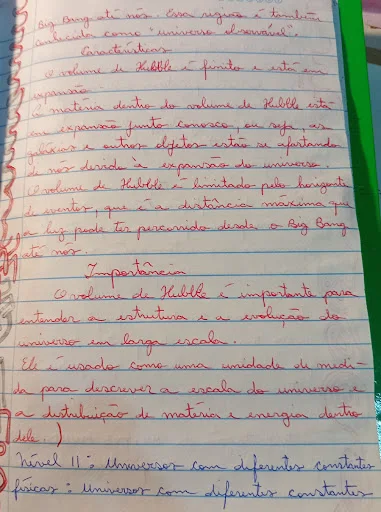 Big Bang até nós. Essa região é também
conhecida como "universo observável".
Características
O volume de Hubble é finito e está em
expansão.
A matéria dentro do volume de Hubble está
em expansão junto conosco, ou seja, as
galáxias e outros objetos estão se afastando
de nós devido à expansão do universo.
O volume de Hubble é limitado pelo horizonte
de eventos, que é a distância máxima que
a luz pode ter percorrido desde o Big Bang
até nós.
Importância
O volume de Hubble é importante para
entender a estrutura e a evolução do
universo em larga escala.
Ele é usado como uma unidade de medi-
da para descrever a escala do universo e
a distribuição de matéria e energia dentro
dele. )
Nível II: Universos com diferentes constantes
físicas: Universos com diferentes constantes